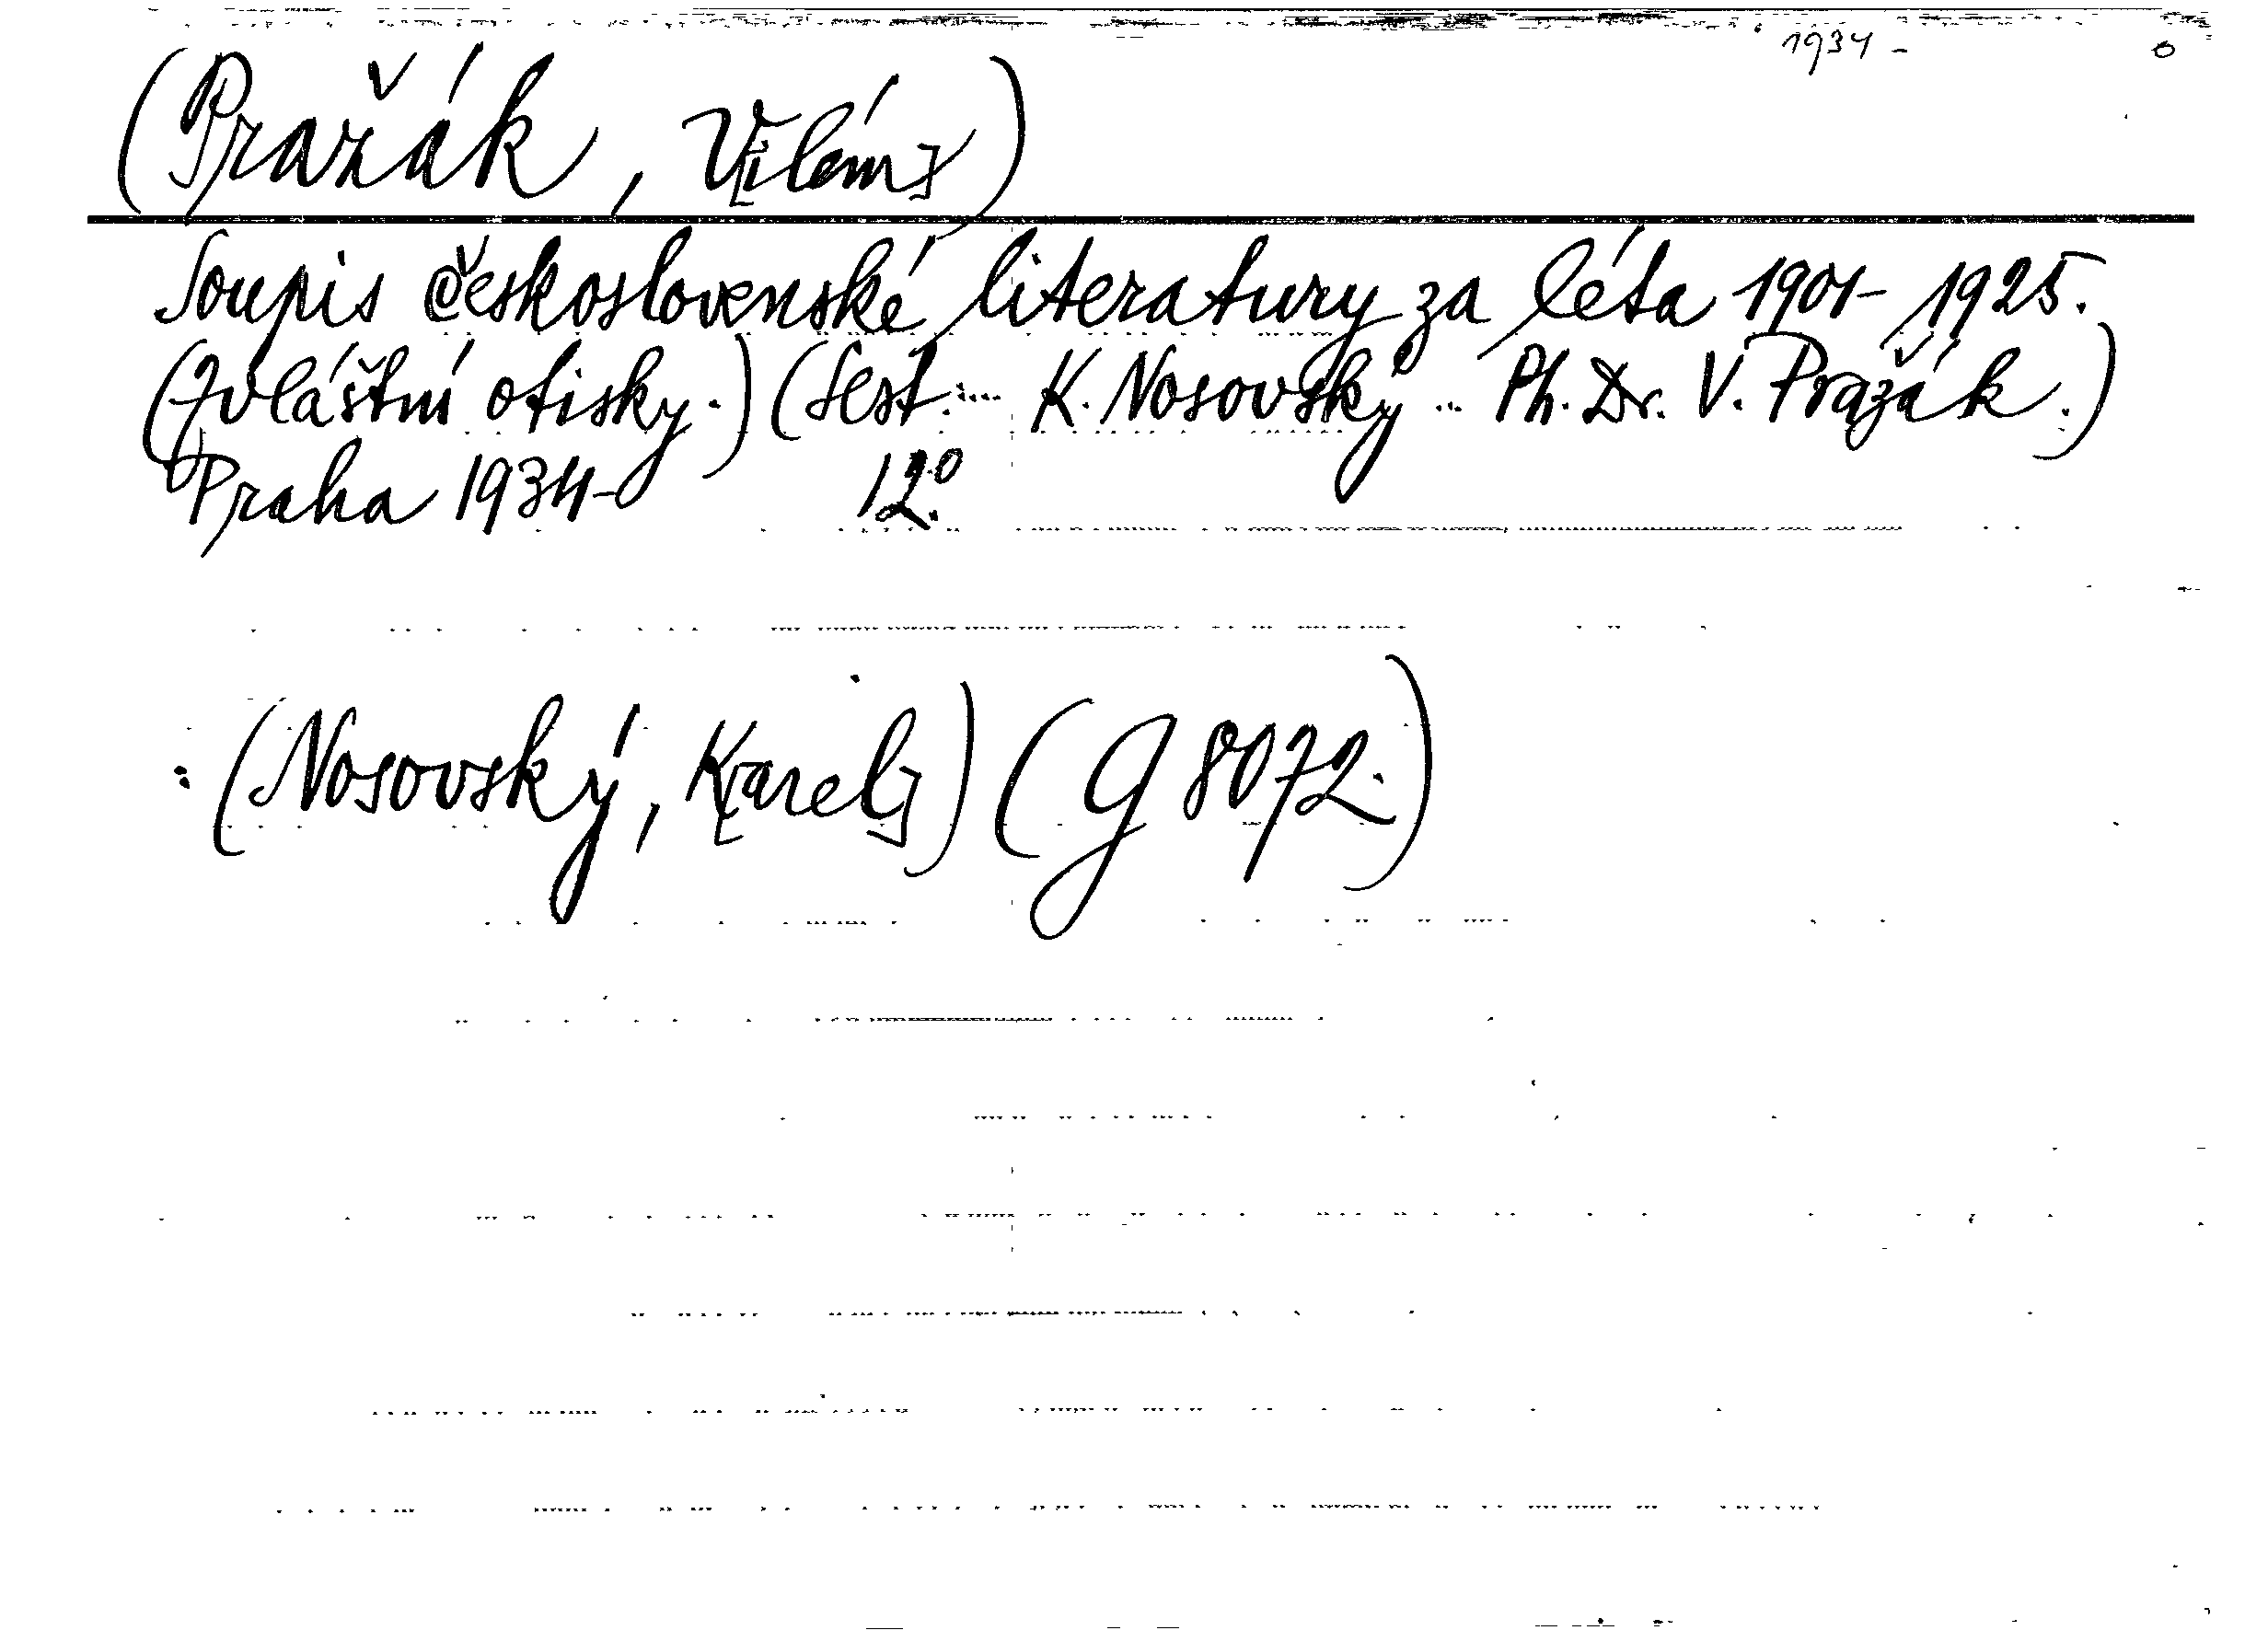 1934 - o
(Pražák, V[ilém])
Soupis československé literatury za léta 1901-1925.
(Zvláštní otisky.) (Sest.... K. Nosovský .. Ph. Dr. V. Pražák.)
Praha 1934- 12°.
: (Nosovský, K[arel]) (G 8072.)